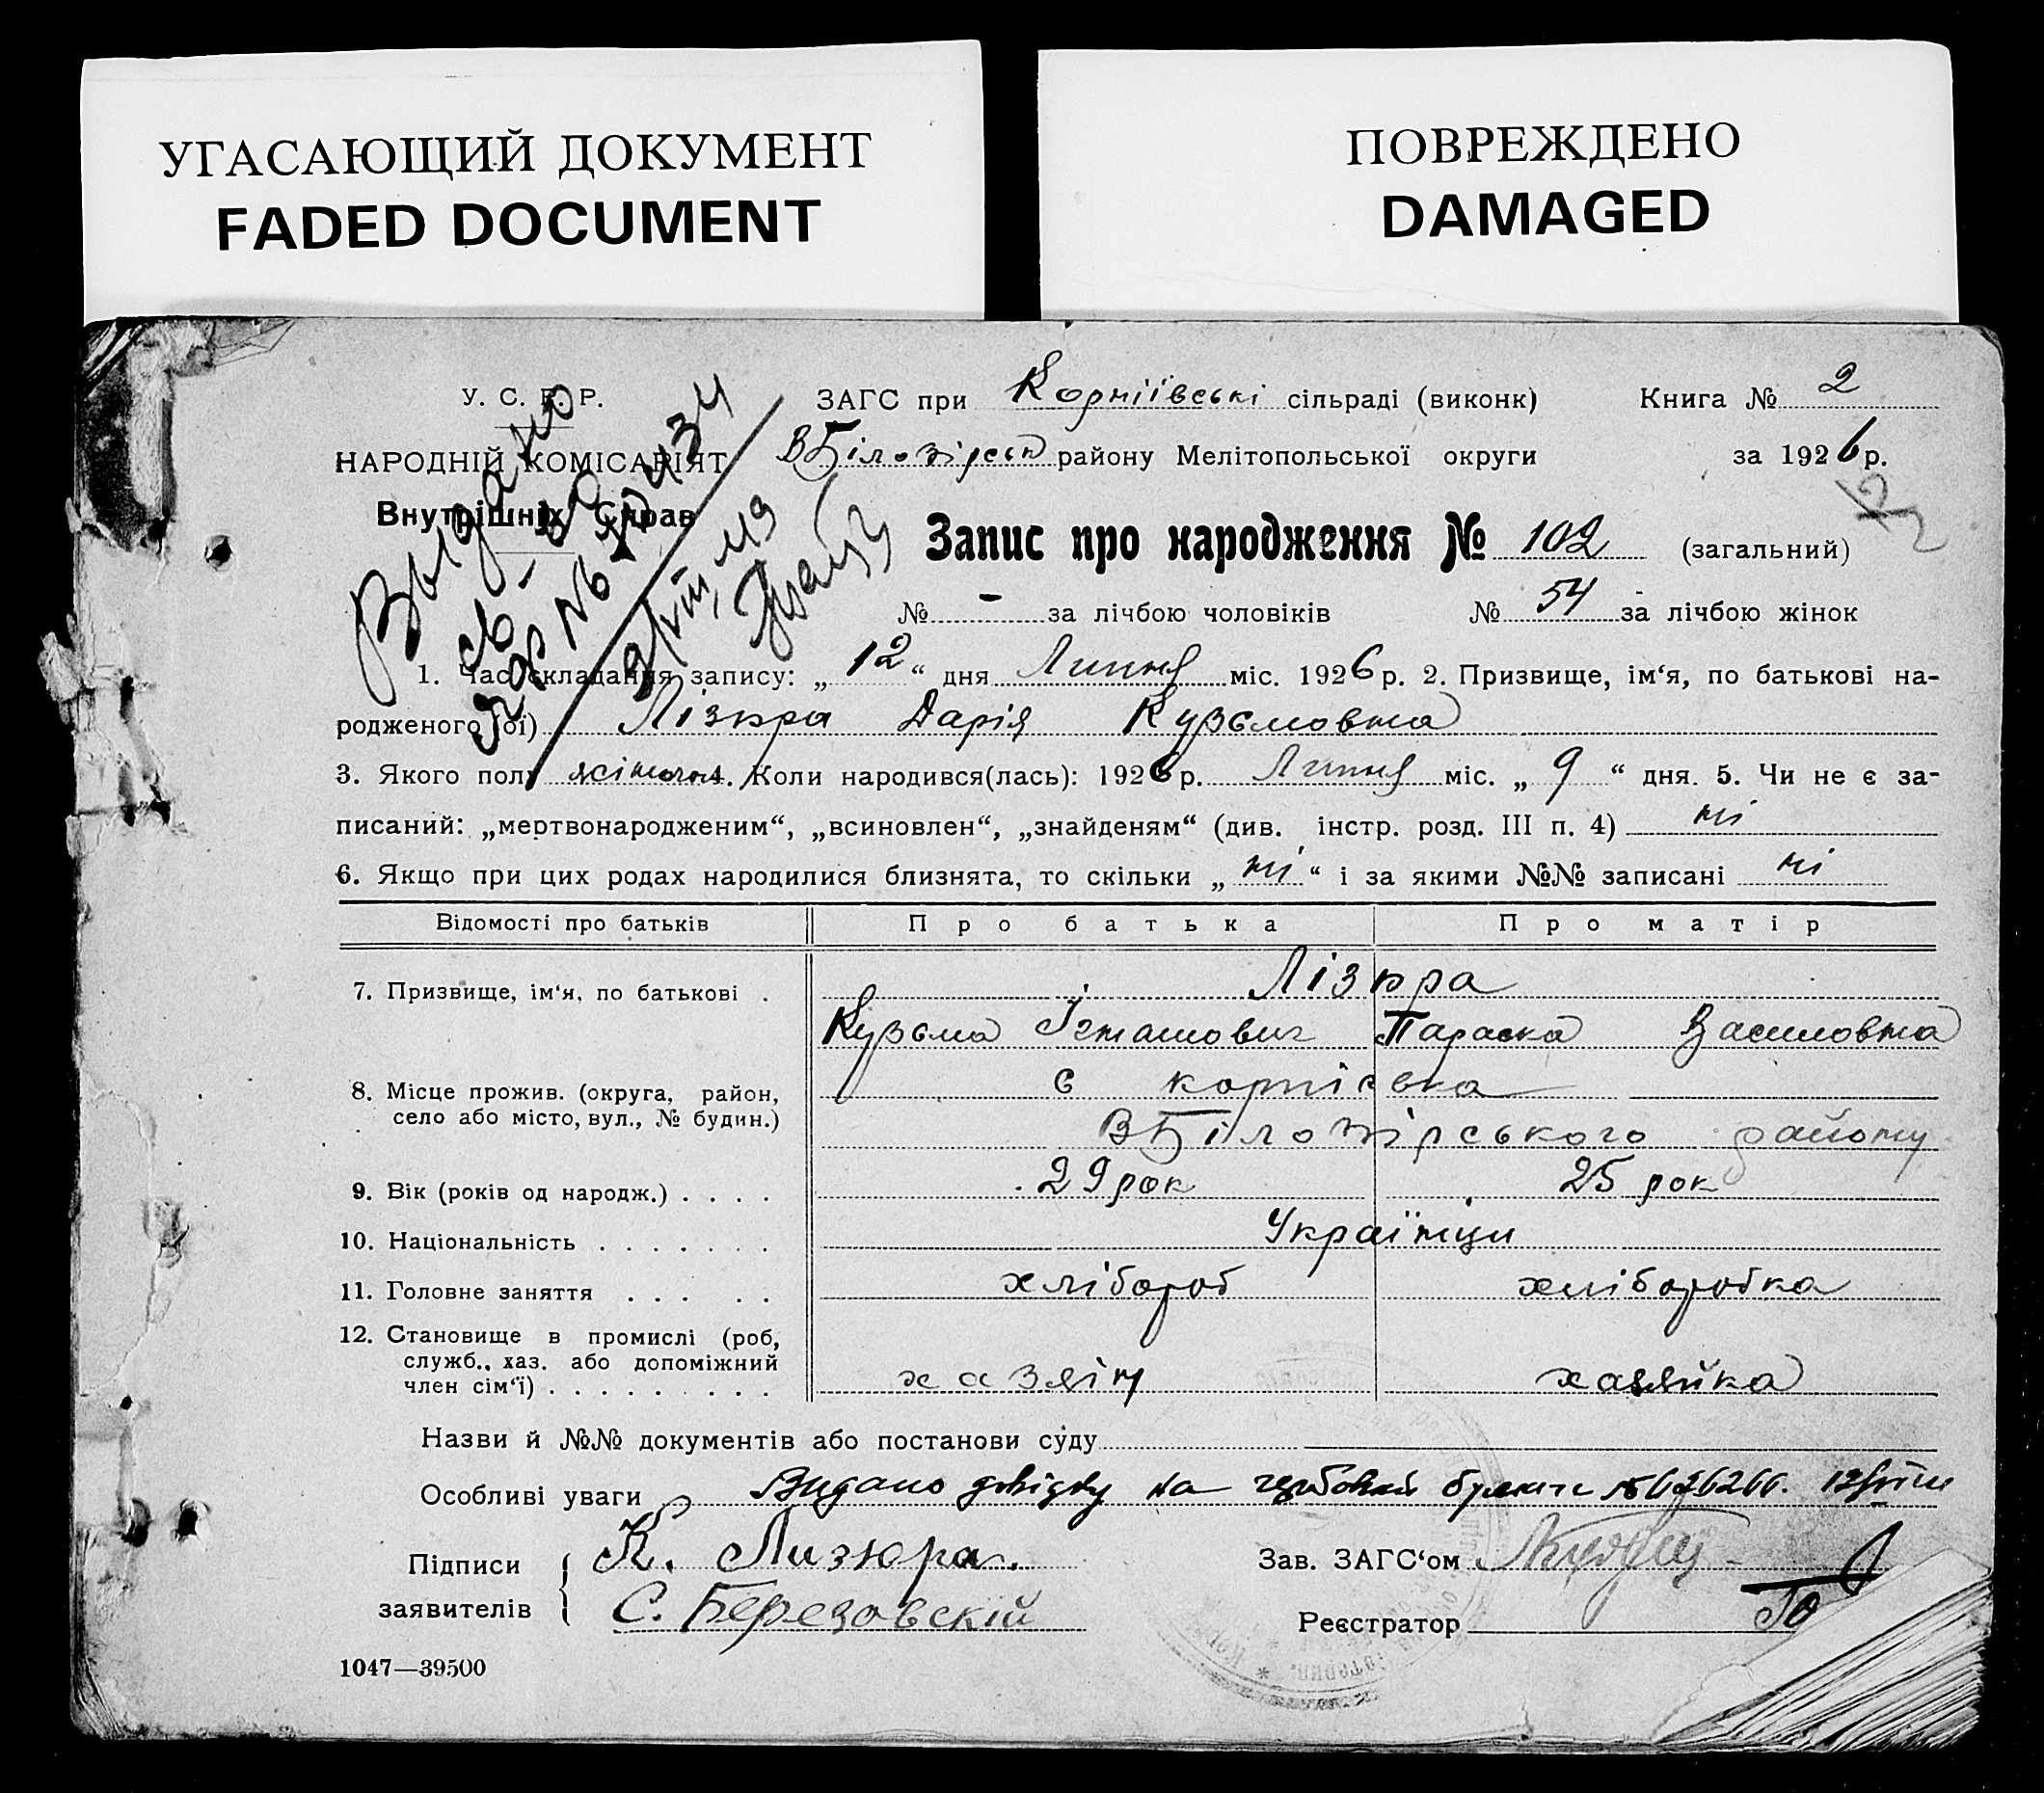 УГАСАЮЩИЙ ДОКУМЕНТ
FADED DOCUMENT
ПОВРЕЖДЕНО
DAMAGED
У. С. Р. Р. ЗАГС при Корніївські сільраді (виконк) Книга № 2
НАРОДНІЙ КОМІСАРІЯТ ВБілозірськ району Мелітопольської округи за 1926 р.
Внутрішніх Справ
Выдано
св-во
Запис про народження № 102 (загальний)
№ - за лічбою чоловіків № 54 за лічбою жінок
1. Час складання запису: „ 12 “ дня Липня міс. 1926 р. 2. Призвище, ім‘я, по батькові на-
родженого (ої) Лізюра Дарія Кузьмовна
3. Якого полу жіночь 4. Коли народився(лась): 1926 р. Липня міс. „ 9 “ дня. 5. Чи не є за-
писаний: „мертвонародженим“, „всиновлен“, „знайденям“ (див. інстр. розд. III п. 4) ні
6. Якщо при цих родах народилися близнята, то скільки „ ні “ і за якими №№ записані ні
Відомості про батьків Про батька Про матір
7. Призвище, ім‘я, по батькові . Лізюра
Кузьма Ігнатович Параска Василовна
8. Місце прожив. (округа, район, с корнієвка
село або місто, вул., № будин.) ВБілозірського району
9. Вік (років од народж.) . . . . 29 рок 25 рок
10. Національність . . . . . . . Українци
11. Головне заняття . . . . . хлібороб хліборобка
12. Становище в промислі (роб,
служб., хаз. або допоміжний
член сім‘ї) . . . . . . . . . хазяін хазяйка
Назви й №№ документів або постанови суду
Особливі уваги Видано довідку на
Підписи К. Лизюра.
заявителів С. Березовскій
Зав. ЗАГС‘ом
Реєстратор
1047—39500